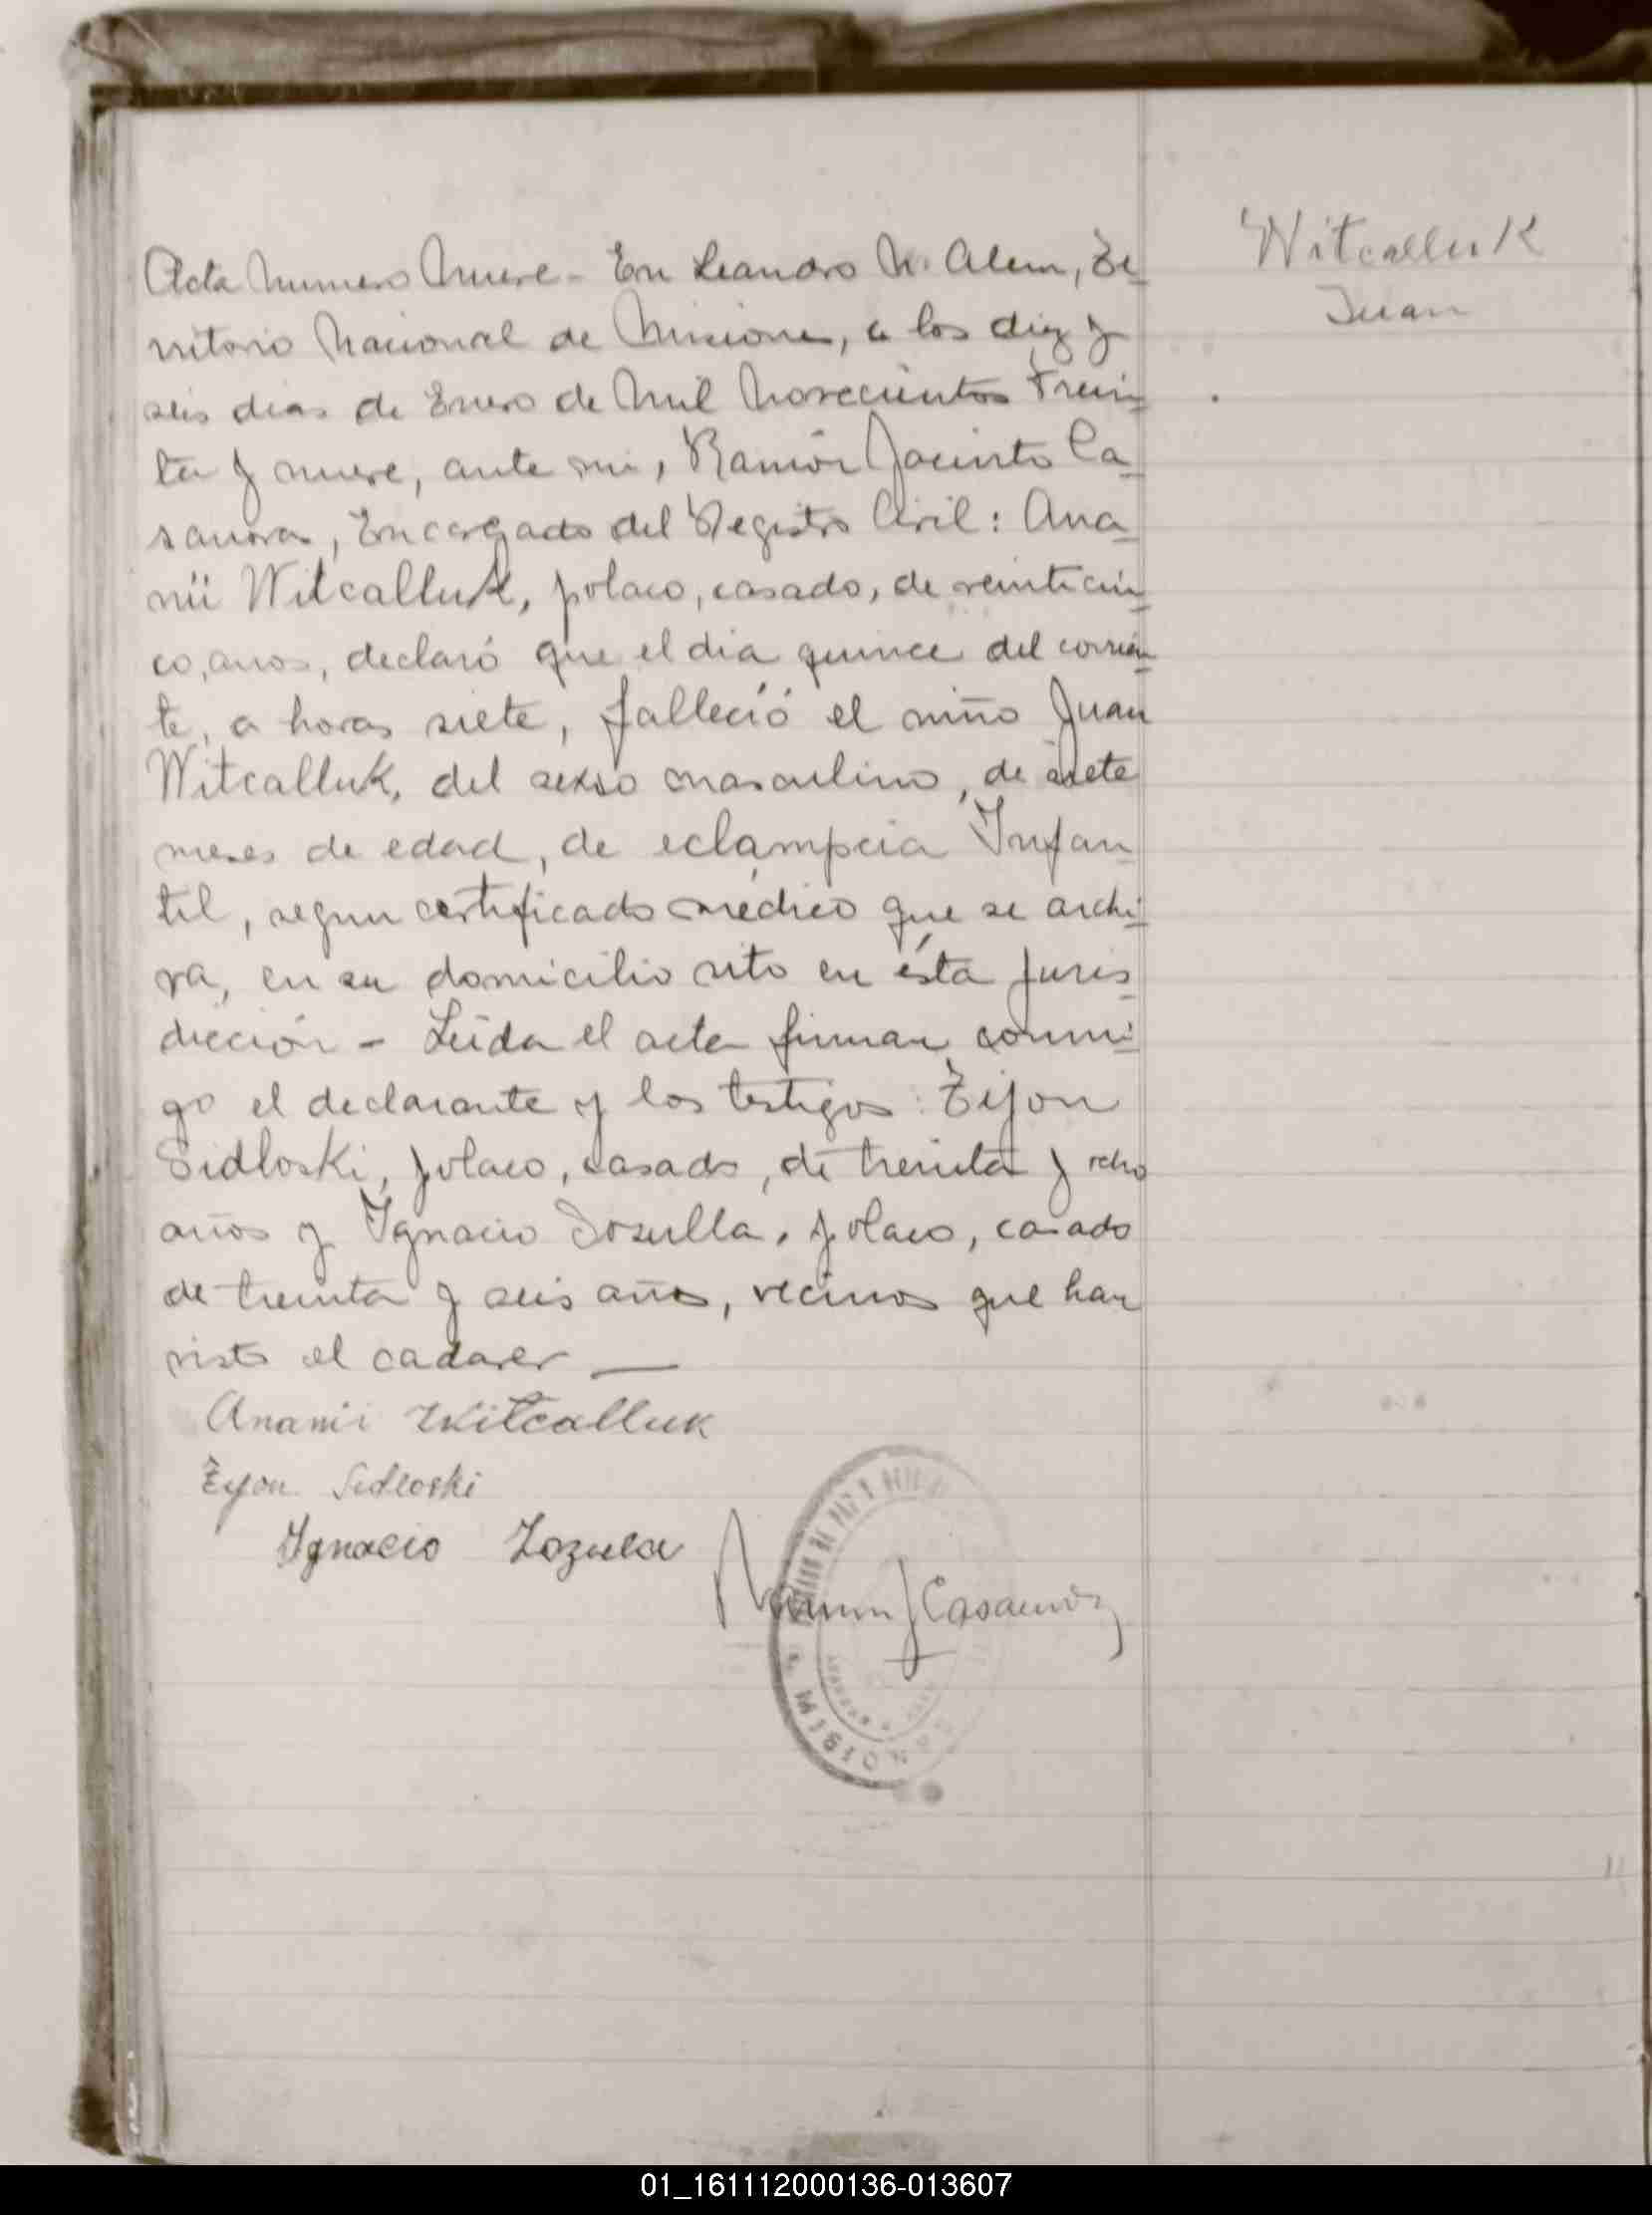 Witcalluk
Juan
Acta Numero Nueve - En Leandro N. Alem, Te-
rritorio Nacional de Misiones, a los diez y
seis dias de Enero de Mil Novecientos Trein-
ta y nueve, ante mi, Ramón Jacinto Ca-
sanova, Encargado del Registro Civil: Ana-
nii Witcalluk, polaco, casado, de veinticin-
co, anos, declaró que el dia quince del corrien-
te, a horas siete, falleció el niño Juan
Witcalluk, del sexso masculino, de siete
meses de edad, de eclampcia Infan-
til, segun certificado médico que se archi-
va, en su domicilio sito en ésta juris-
dicción - Leida el acta firman conmi-
go el declarante y los testigos: Tijon
Sidloski, polaco, casado, de treinta y ocho
años y Ignacio Sozulla, polaco, casado
de treinta y seis años, vecinos que han
visto el cadaver —
Ananii Witcalluk
Tijon Sidloski
Ignacio Zozula
Ramon J Casanova
MISIONES
01_161112000136-013607